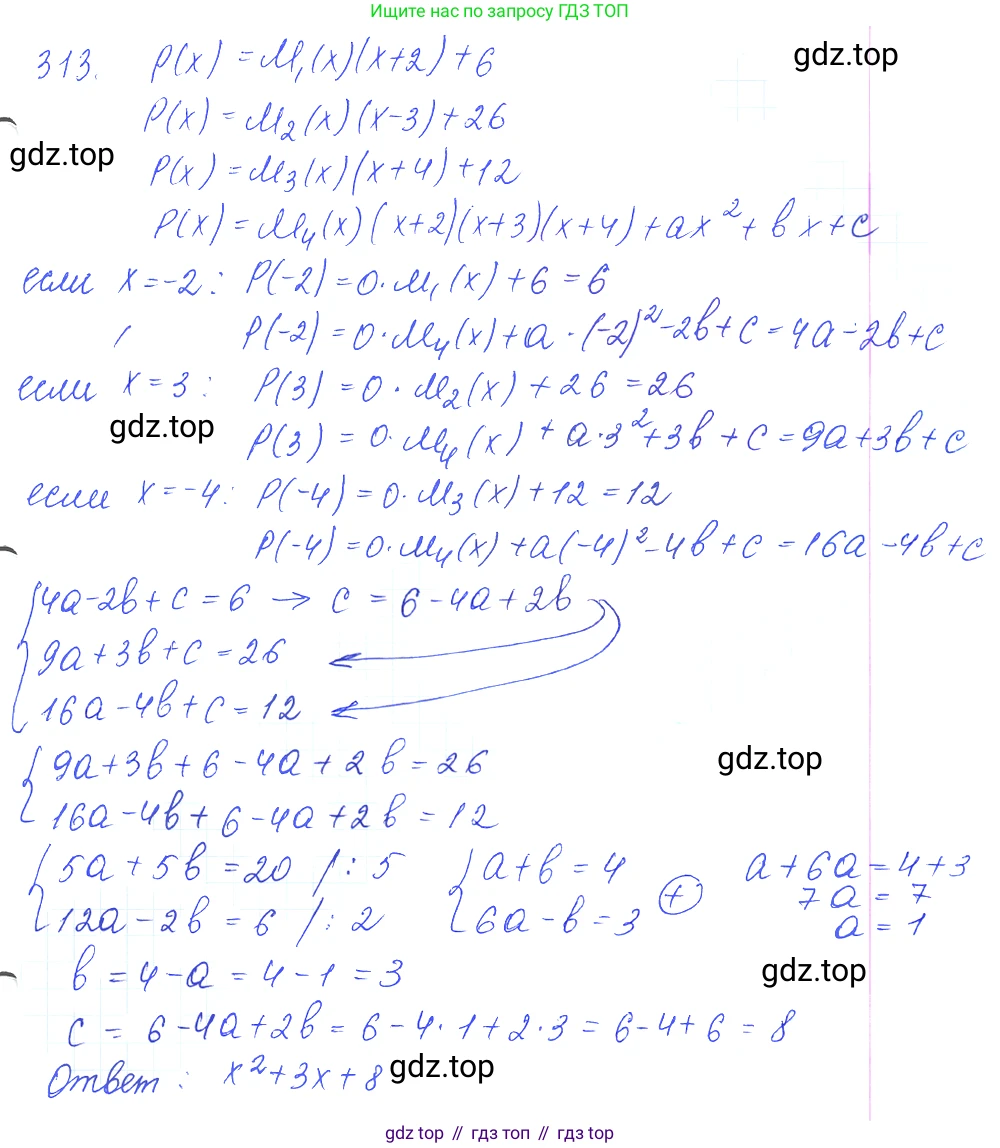 Ищите нас по запросу ГДЗ ТОП
313. P(x) = M₁(x)(x+2)+6
gdz.top
P(x) = M₂(x)(x-3)+26
gdz.top
P(x) = M₃(x)(x+4)+12
P(x) = M₄(x)(x+2)(x+3)(x+4)+ax²+bx+c
если x=-2: P(-2)=0·M₁(x)+6=6
P(-2)=0·M₄(x)+a·(-2)²-2b+c=4a-2b+c
если x=3: P(3)=0·M₂(x)+26=26
gdz.top
P(3)=0·M₄(x)+a·3²+3b+c=9a+3b+c
если x=-4: P(-4)=0·M₃(x)+12=12
P(-4)=0·M₄(x)+a(-4)²-4b+c=16a-4b+c
4a-2b+c=6 → c=6-4a+2b
9a+3b+c=26
16a-4b+c=12
9a+3b+6-4a+2b=26
gdz.top
16a-4b+6-4a+2b=12
5a+5b=20 /:5 a+b=4 a+6a=4+3
12a-2b=6 /:2 6a-b=3 (+) 7a=7
a=1
b=4-a=4-1=3
gdz.top
c=6-4a+2b=6-4·1+2·3=6-4+6=8
Ответ: x²+3x+8
gdz.top
gdz.top // гдз.топ // гдз.top